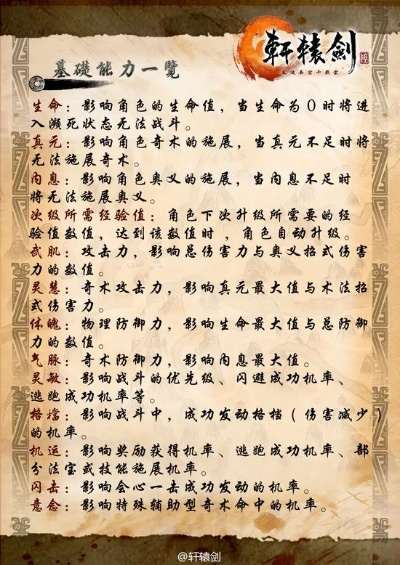 軒轅劍
陸
基礎能力一覽
生命：影响角色的生命值，当生命为0时将进
入濒死状态无法战斗。
真元：影响角色奇术的施展，当真元不足时将
无法施展奇术。
内息：影响角色奥义的施展，当内息不足时
将无法施展奥义。
次级所需经验值：角色下次升级所需要的经
验值数值，达到该数值时，角色自动升级。
武肌：攻击力，影响总伤害力与奥义招式伤害
力的数值。
灵慧：奇术攻击力，影响真元最大值与术法招
式伤害力。
体魄：物理防御力，影响生命最大值与总防御
力的数值。
气脉：奇术防御力，影响内息最大值。
灵敏：影响战斗的优先级、闪避成功机率、
逃跑成功机率等。
格檔：影响战斗中，成功发动格档（伤害减少）
的机率。
机运：影响奖励获得机率、逃跑成功机率、部
分法宝或技能施展机率。
闪击：影响会心一击成功发动的机率。
意念：影响特殊辅助型奇术命中的机率。
@轩辕剑